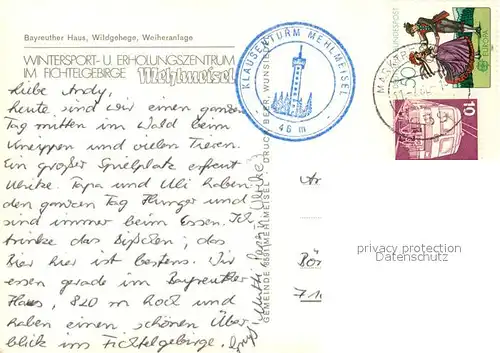 Bayreuther Haus, Wildgehege, Weiheranlage
WINTERSPORT- U. ERHOLUNGSZENTRUM
IM FICHTELGEBIRGE Mehlmeisel
Liebe Andy,
heute sind wir einen ganzen
Tag mitten im Wald beim
Kneippen und vielen Tieren.
Ein großer Spielplatz erfreut
Ulrike. Papa und Uli haben
den ganzen Tag Hunger und
sind immer beim Essen. Ich
trinke das Bißchen; das
Bier hier ist bestens. Wir
essen gerade im Bayreuther
Haus, 820 m hoch und
haben einen schönen Über
blick ins Fichtelgebirge.
Mutti Papa Ulrike
KLAUSENTURM MEHLMEISEL
46 m
GEMEINDE 8591 MEHLMEISEL - DRUCK: BEER, WUNSIEDEL
EUROPA
10
privacy protection
Datenschutz